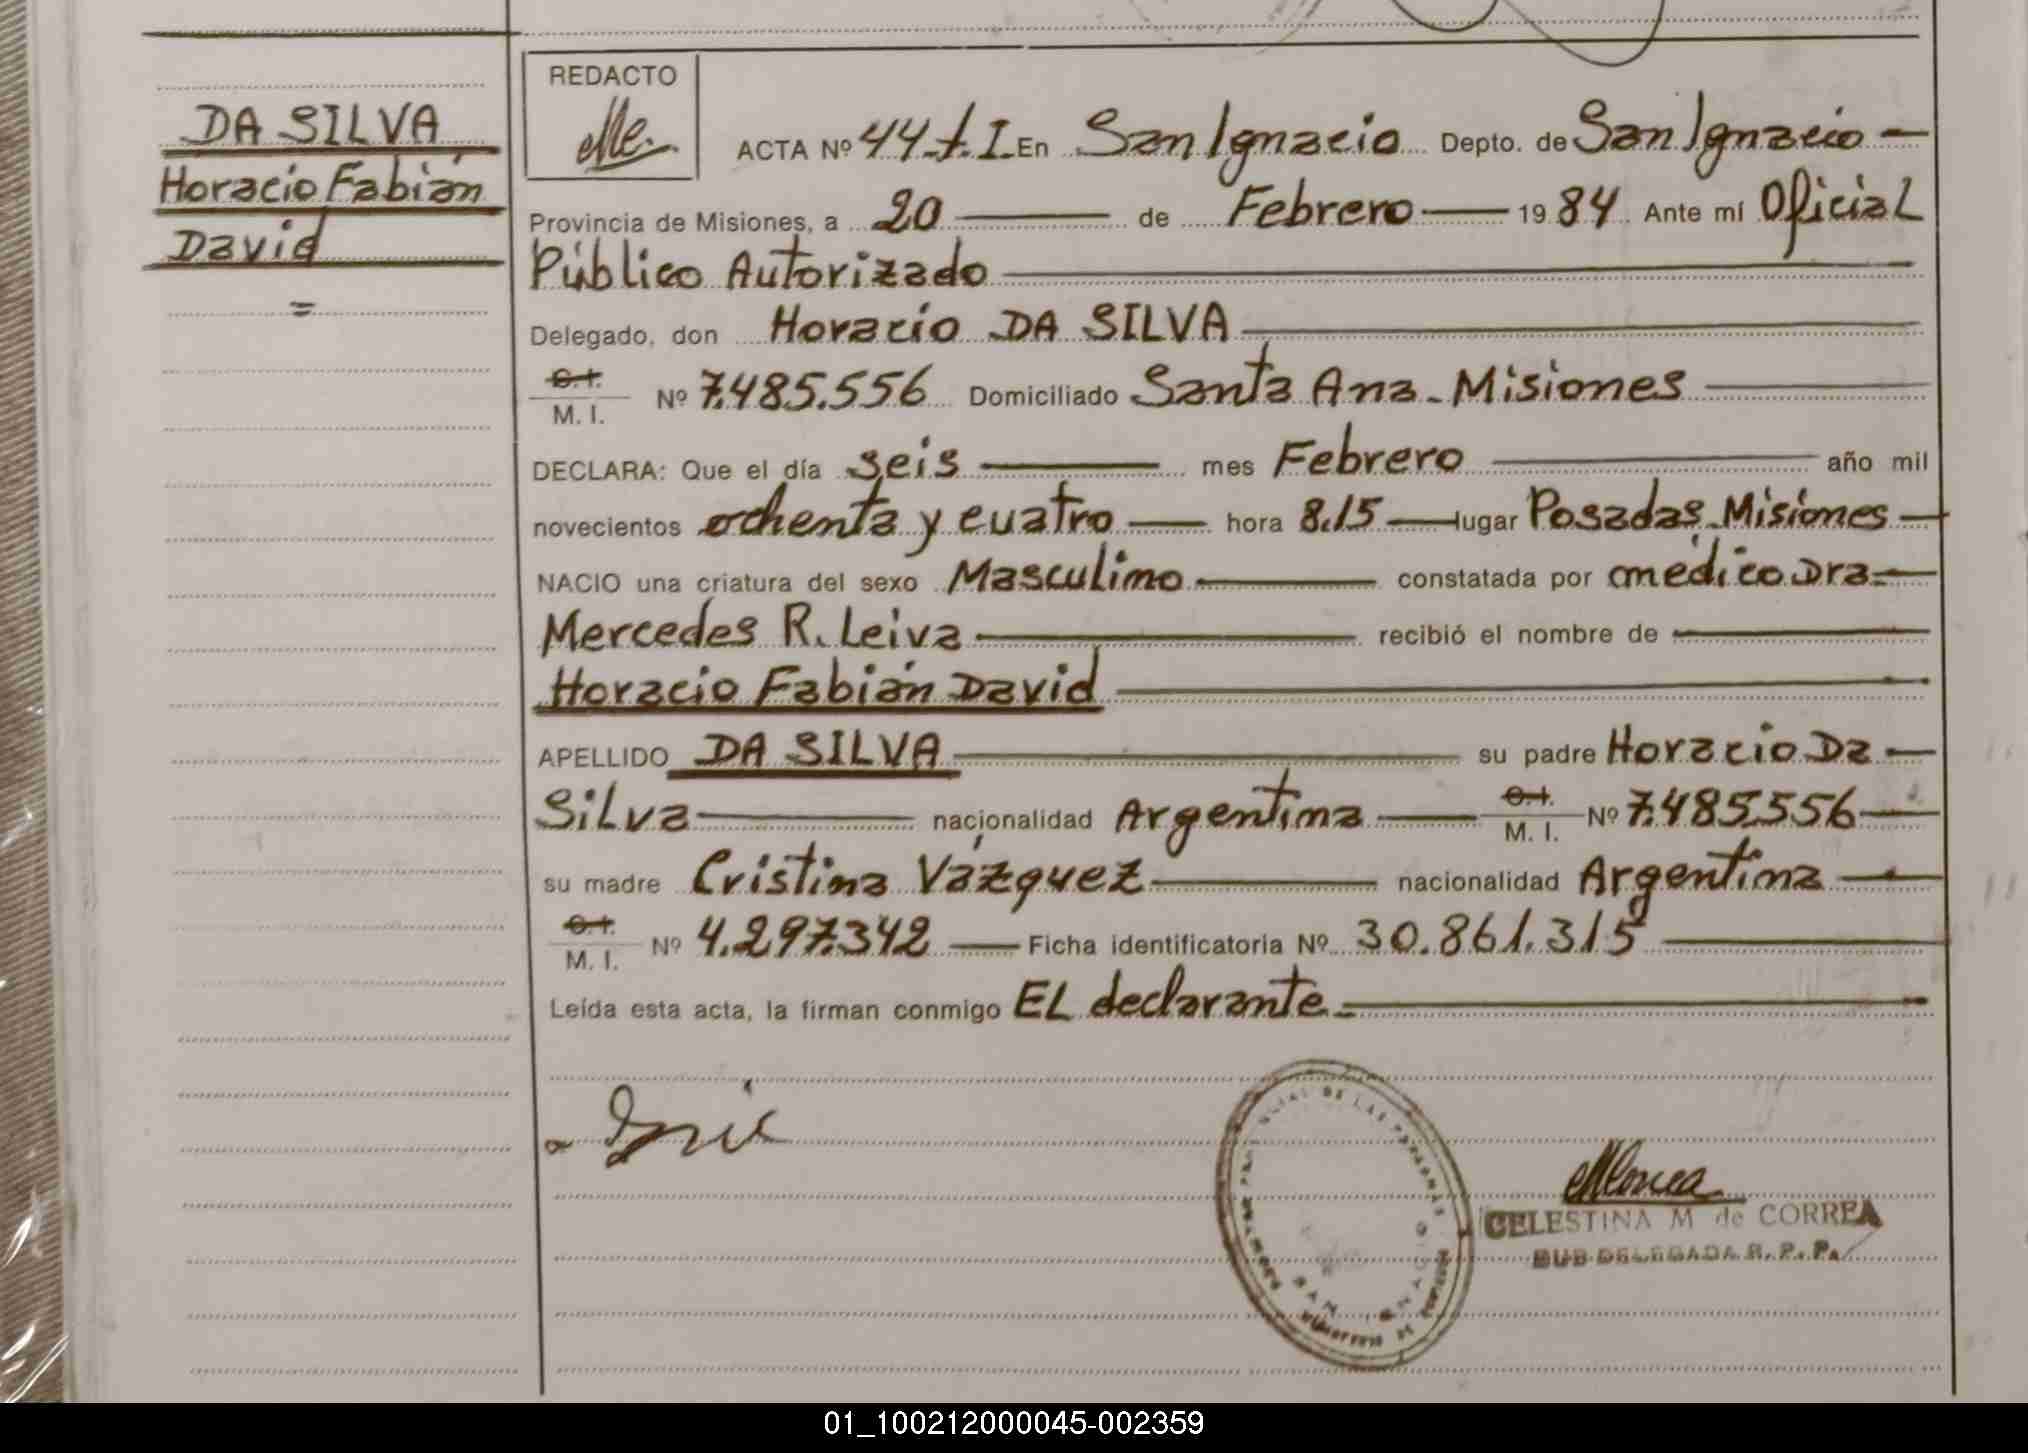 DA SILVA
Horacio Fabián
David
=
REDACTO
ACTA Nº 44.t.I. En San Ignacio Depto. de San Ignacio
Provincia de Misiones, a 20 de Febrero 1984 Ante mí Oficial
Público Autorizado
Delegado, don Horacio DA SILVA
C.I.
M. I. Nº 7.485.556 Domiciliado Santa Ana - Misiones
DECLARA: Que el día seis mes Febrero año mil
novecientos ochenta y cuatro hora 8.15 lugar Posadas, Misiones
NACIO una criatura del sexo Masculino constatada por médico Dra
Mercedes R. Leiva recibió el nombre de
Horacio Fabián David
APELLIDO DA SILVA su padre Horacio Da
Silva nacionalidad Argentina C.I. M. I. Nº 7.485.556
su madre Cristina Vázquez nacionalidad Argentina
C.I.
M. I. Nº 4.297.342 Ficha identificatoria Nº 30.861.315
Leída esta acta, la firman conmigo EL declarante.
CELESTINA M de CORREA
SUB DELEGADA R. P. P.
01_100212000045-002359